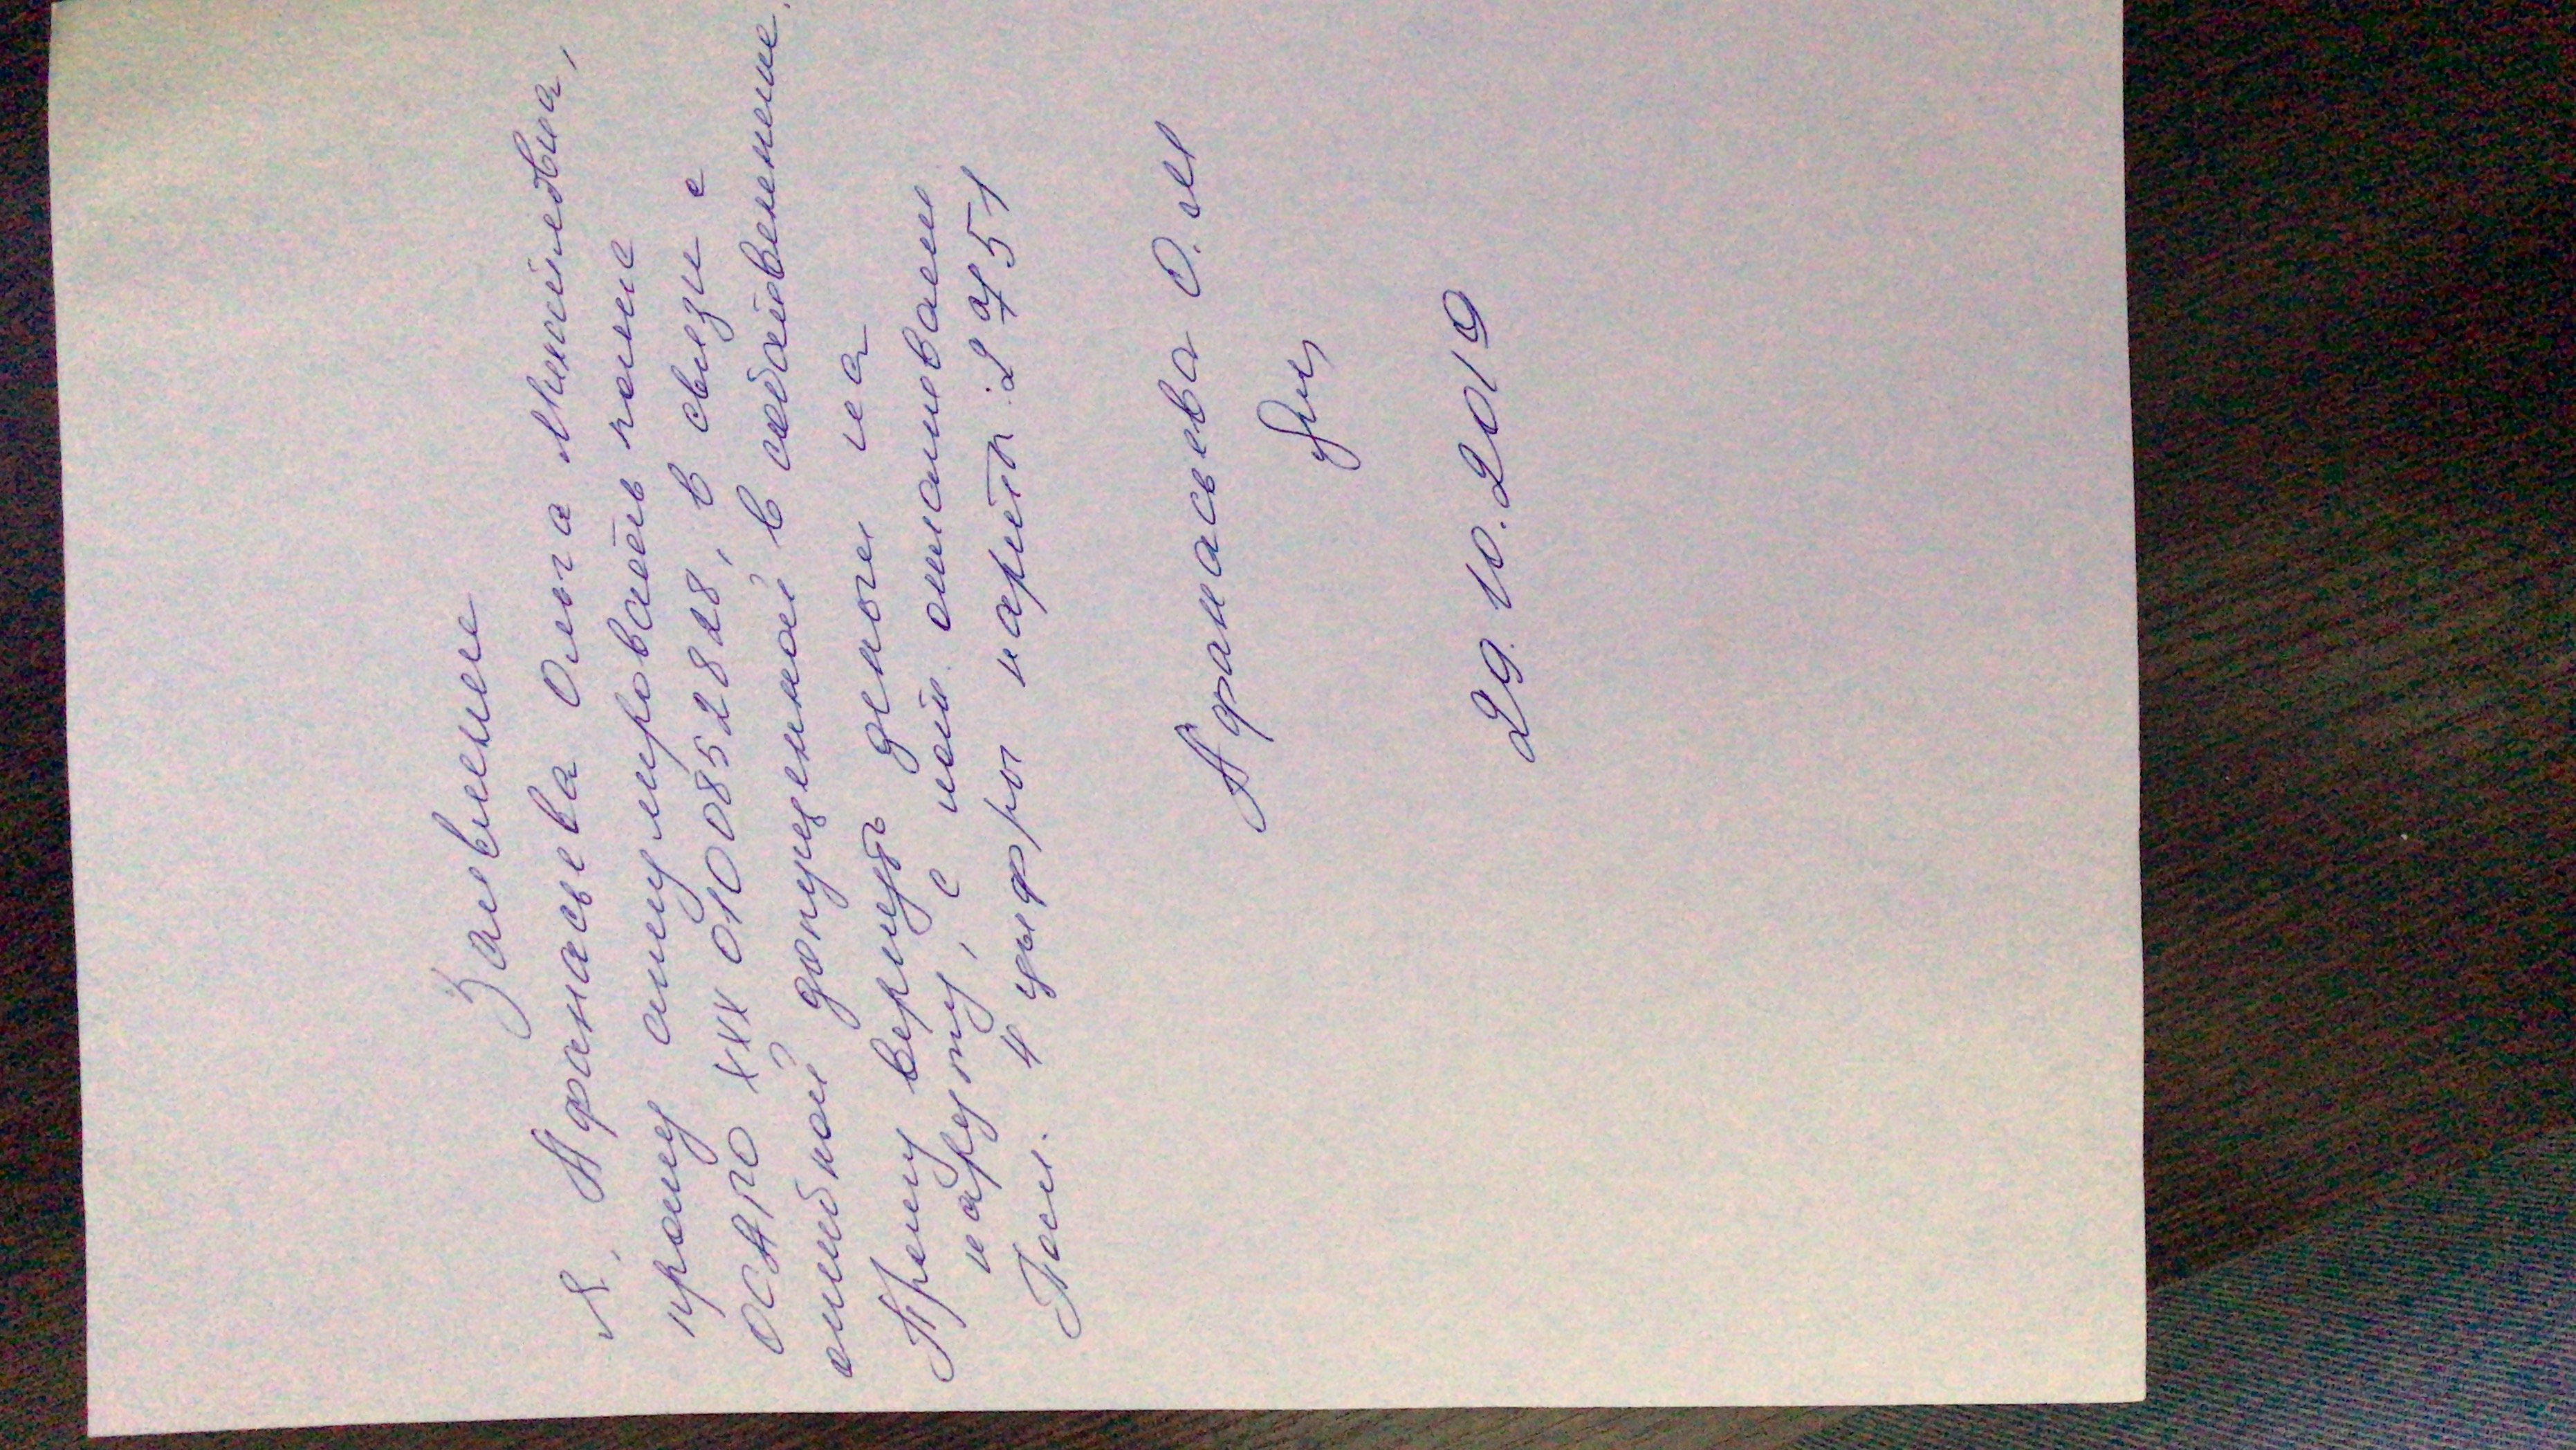 Заявление
Я, Афанасьева Ольга Михайловна,
прошу аннулировать полис
ОСАГО ХХХ 0100852828, в связи с
ошибкой допущенной в собственнике.
Прошу вернуть деньги на
карту, с кот. оплачивали
Посл. 4 цыфры карты: 2751
Афанасьева О.М
29.10.2019